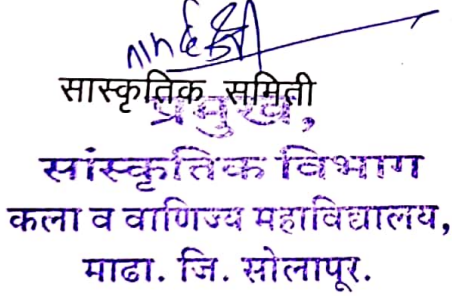 सास्कृतिक समिती
प्रमुख,
सांस्कृतिक विभाग
कला व वाणिज्य महाविद्यालय,
माढा. जि. सोलापूर.